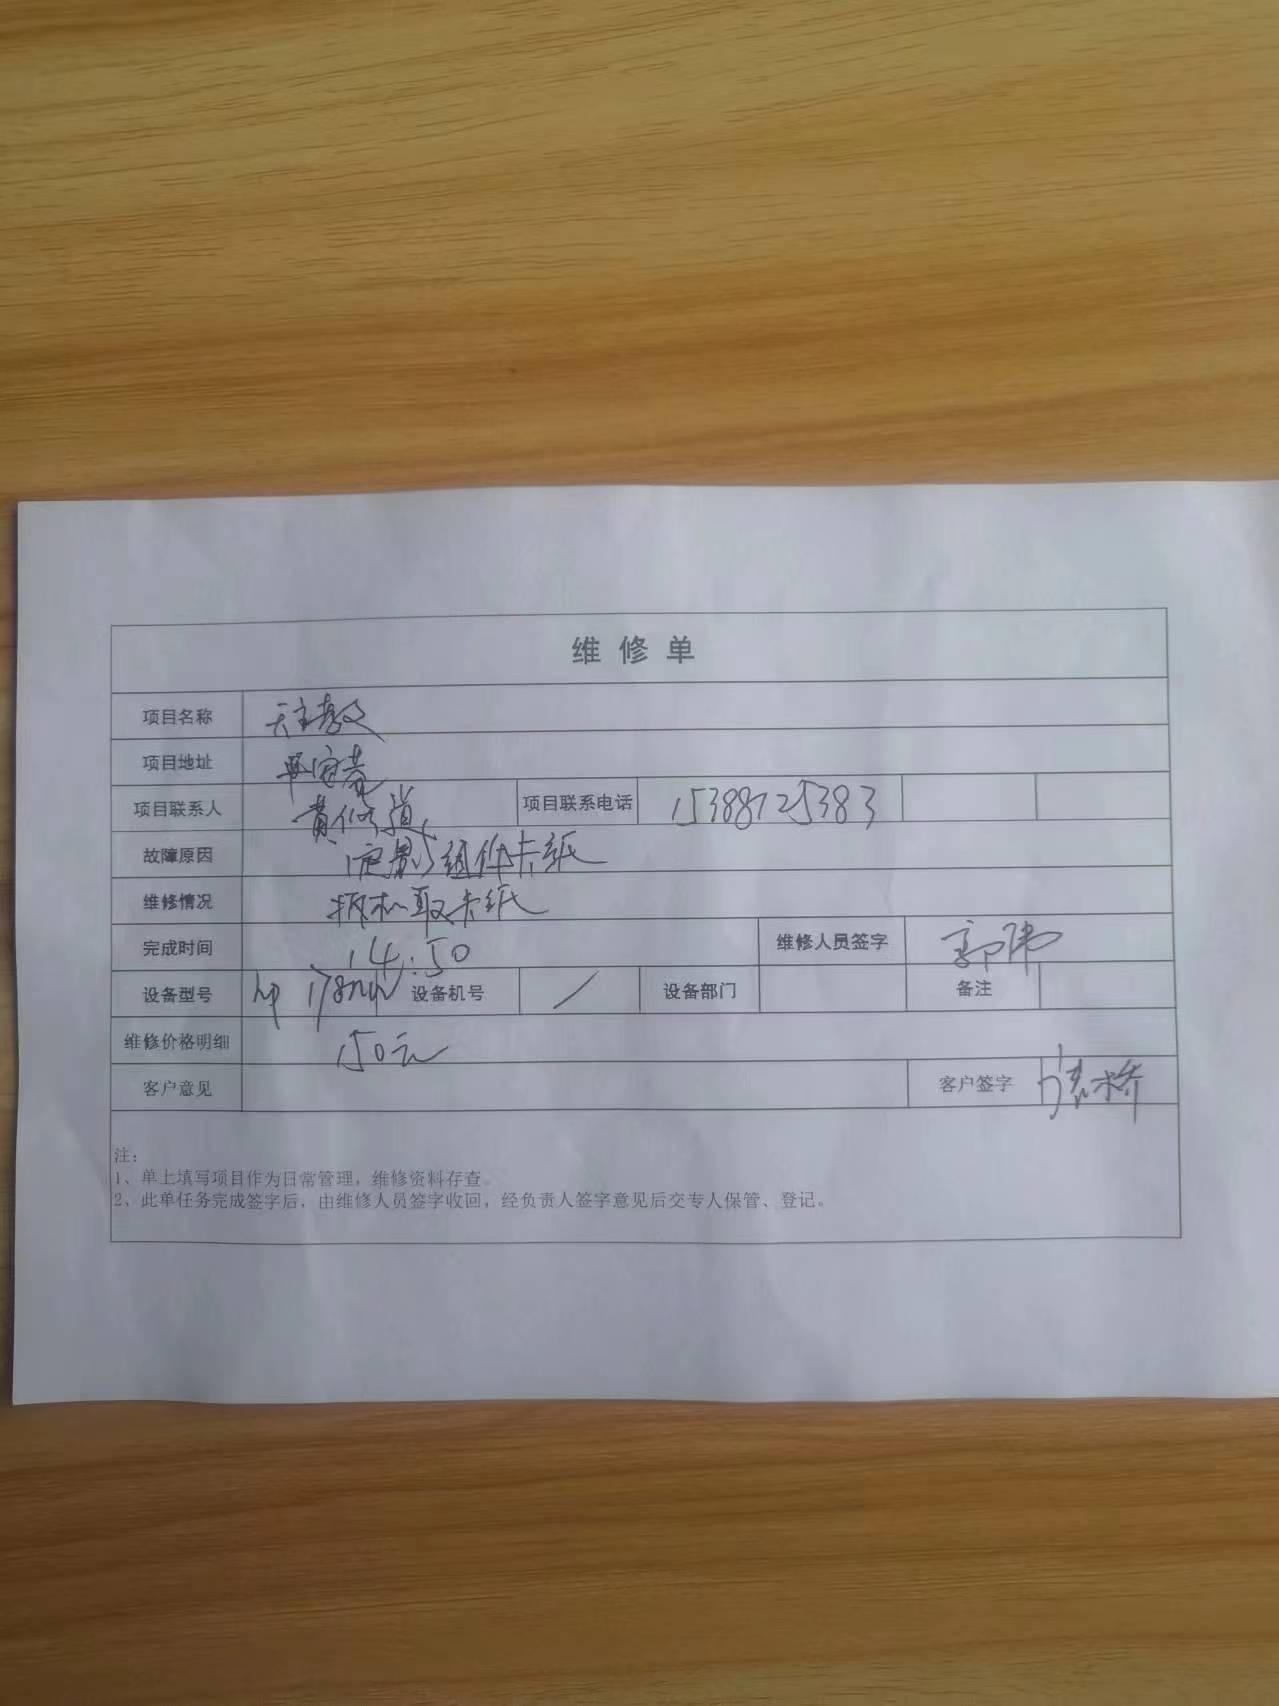 维修单
项目名称 天主教
项目地址
项目联系人 黄修道 项目联系电话 15388125383
故障原因 定影组件卡纸
维修情况 拆机取卡纸
完成时间 14:50 维修人员签字 郭伟
设备型号 hp 178nw 设备机号 / 设备部门 备注
维修价格明细 150元
客户意见 客户签字
注:
1、单上填写项目作为日常管理，维修资料存查。
2、此单任务完成签字后，由维修人员签字收回，经负责人签字意见后交专人保管、登记。